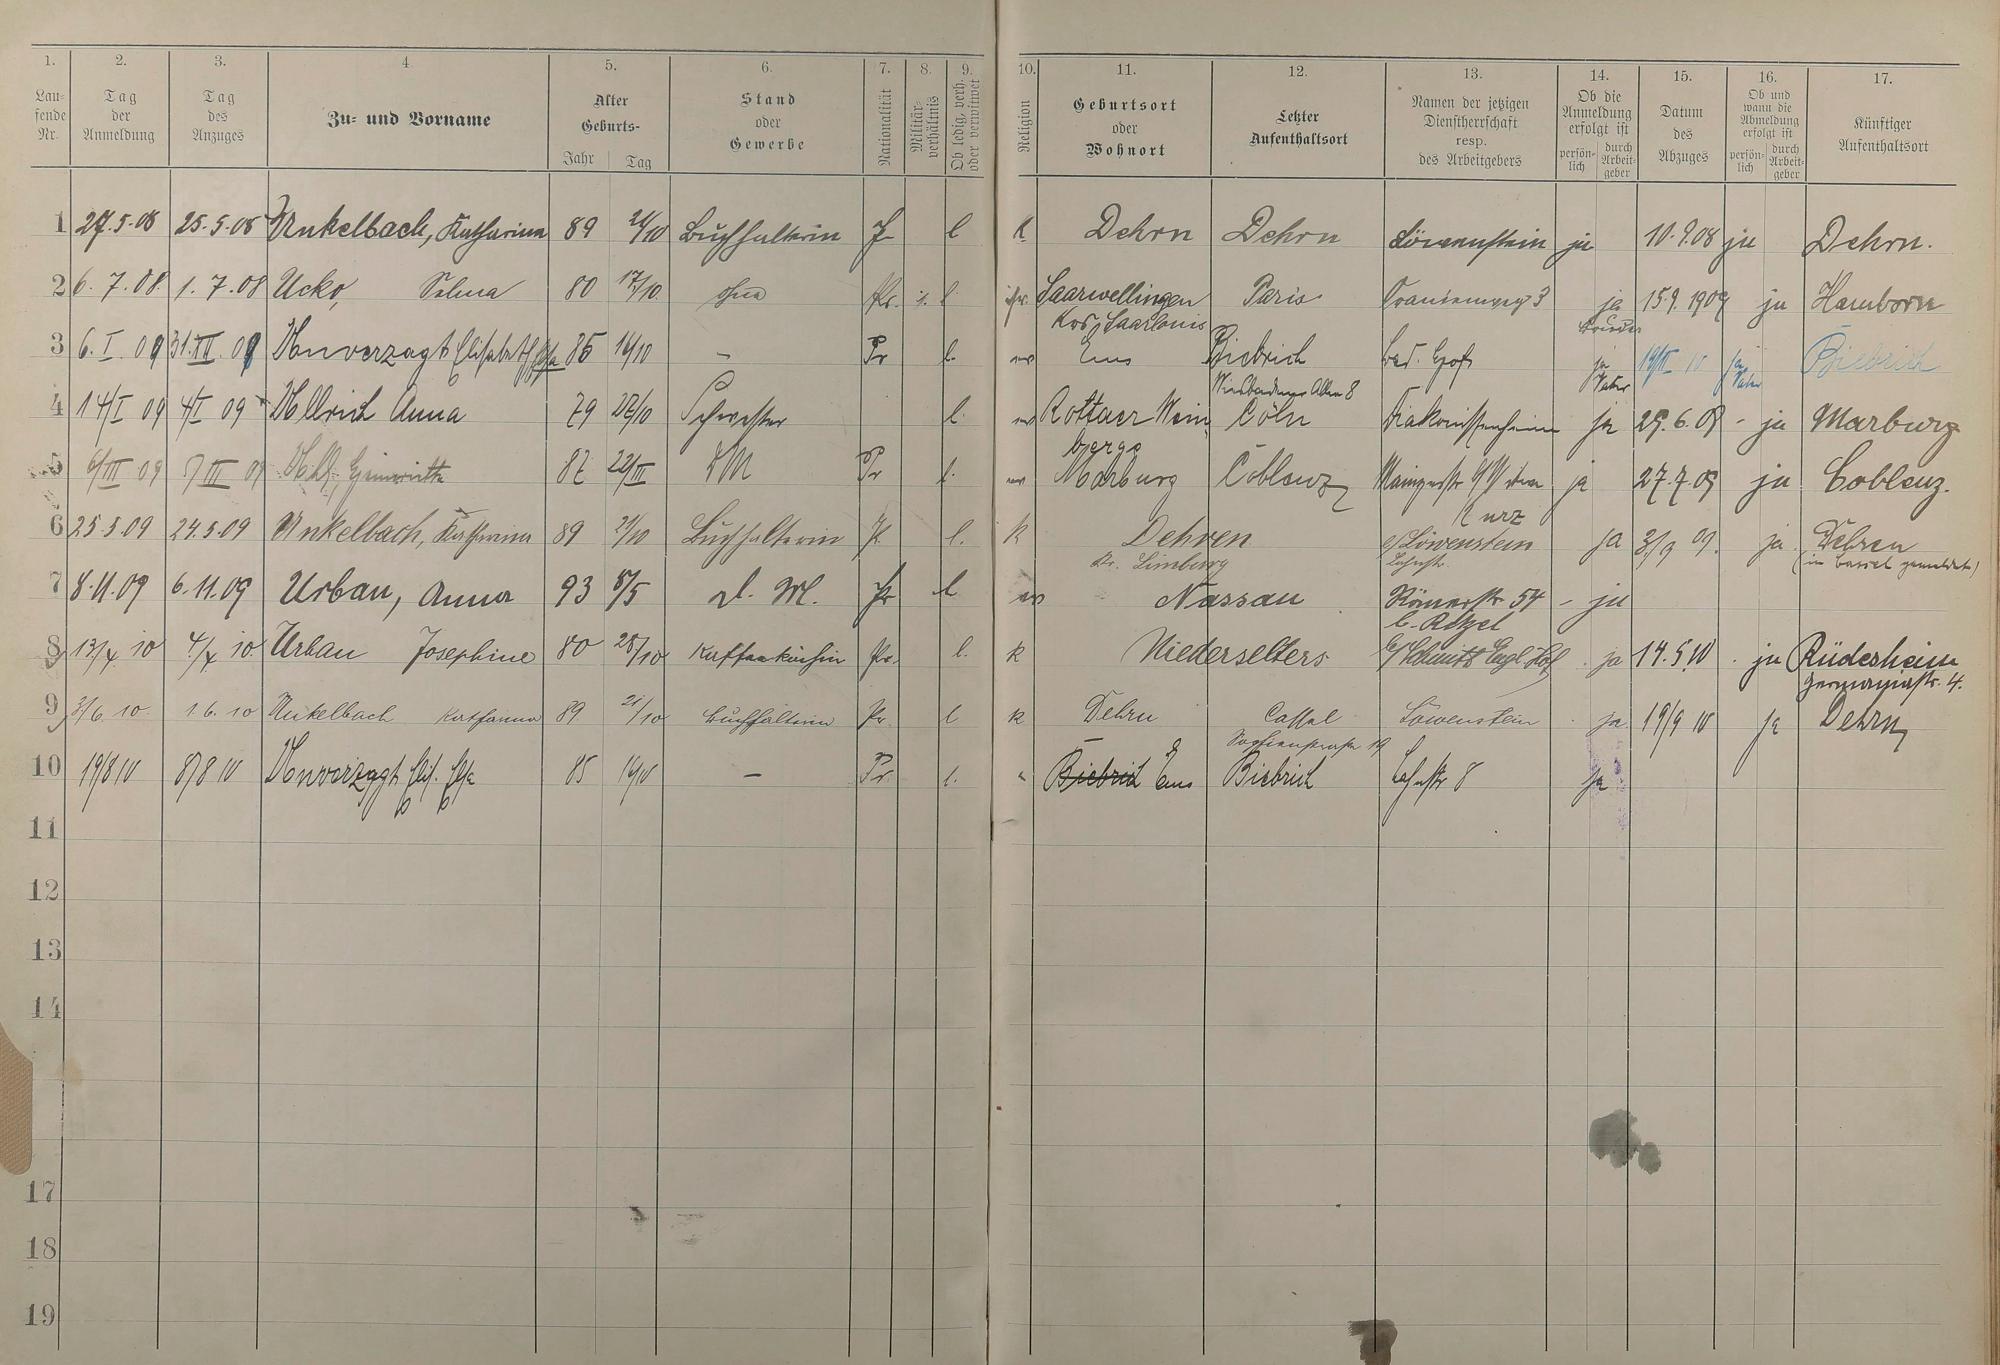 1. 2. 3. 4. 5. 6. 7. 8. 9. 10. 11. 12. 13. 14. 15. 16. 17.
Lau-
fende
Nr.
Tag
der
Anmeldung
Tag
des
Anzuges
Zu- und Vorname
Alter
Geburts-
Jahr Tag
Stand
oder
Gewerbe
Nationalität
Militär-
verhältnis
Ob ledig, verh.
oder verwitwet
Religion
Geburtsort
oder
Wohnort
Letzter
Aufenthaltsort
Namen der jetzigen
Dienstherrschaft
resp.
des Arbeitgebers
Ob die
Anmeldung
erfolgt ist
persön-
lich
durch
Arbeit-
geber
Datum
des
Abzuges
Ob und
wann die
Abmeldung
erfolgt ist
persön-
lich
durch
Arbeit-
geber
Künftiger
Aufenthaltsort
1 27.5.08 25.5.08 Unkelbach, Katharina 89 21/10 Buchhalterin l k Dehrn Dehrn Löwenstein ja 10.9.08 ja Dehrn.
2 6.7.08. 1.7.08 Ucko, Selma 80 17/10. ohne Pr. l. Saarwellingen Paris Oranienweg 3 ja 15.9.1909 ja Hamborn
Saarlouis
3 6.I.09 31.XII.08 Unverzagt Elisabeth Elsa 85 14/10 – Pr l. ev Ems Biebrich Hof ja ja Biebrich
Vater Vater
Wiesbadener Allee 8
4 14/I 09 4/I 09 Ullrich Anna 79 27/10 Schwester l. ev Rottaer Wein- Cöln Diakonissenheim ja 29.6.09 - ja Marburg
berge
5 6/III 09 1/III 09 Henriette 87 22/II DM Pr l. ev Marburg Coblenz Mainzerstr ja 27.7.09 ja Coblenz.
Kurz
6 25.5.09 24.5.09 Unkelbach, Katharina 89 21/10 Buchhalterin Pr l. k Dehren b/Löwenstein ja 3/9 09. ja. Dehren
Kr. Limburg Lahnstr. (in Cassel gemeldet)
7 8.11.09 6.11.09 Urban, Anna 93 8/5 D. M. Pr l ev Nassau Römerstr 54 - ja
b. Rötzel
8 13/4 10 4/4 10. Urban Josephine 80 28/10 Kaffeeköchin Pr. l. k Niederselters b/Schmitt Engl. Hof ja 14.5.10 . ja Rüdesheim
Germaniastr. 4.
9 3/6.10. 1.6.10 Unkelbach Katharina 89 21/10 Buchhalterin Pr. l k Dehrn Cassel Löwenstein . ja. 19/9 10 ja Dehrn
19
10 19/8 10 8/8 10 Unverzagt Elis. Elsa 85 14/10 – Pr. l. " Biebrich Ems Biebrich Lahnstr 8 ja
11
12
13
14
17
18
19